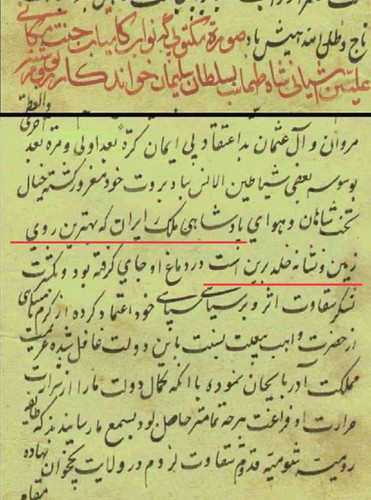 تاج و ظل الله همیشه باد صورة مکتوبی که نواب کامیاب جنت مکانی
علیین آشیانی شاه طهماسب بسلطان سلیمان خواندکار روم نوشته
مروان و آل عثمان بد اعتقاد بی ایمان کرة بعد اولی و مرة بعد
بوسوسه بعضی شیاطین الانس بباد بروت خود مغرور گشته خیال
تخت شاهان و هوای پادشاهی ملک ایران که بهترین روی
زمین و نشانه خلد برین است در دماغ او جای گرفته بود و بکثرت
لشکر شقاوت اثر و بر سپاهی خود اعتماد کرده از کرم
از حضرت واهب بی منت نسبت باین دولت غافل شده عزیمت
مملکت آذربایجان نموده با آنکه کمال دولت ما را از شرارت
حرارت او فراغت هر چه تمامتر حاصل بود بسمع ما رسانیدند که طایفه
رومیه شومیه قدوم شقاوت لزوم در ولایت نخجوان نهاده